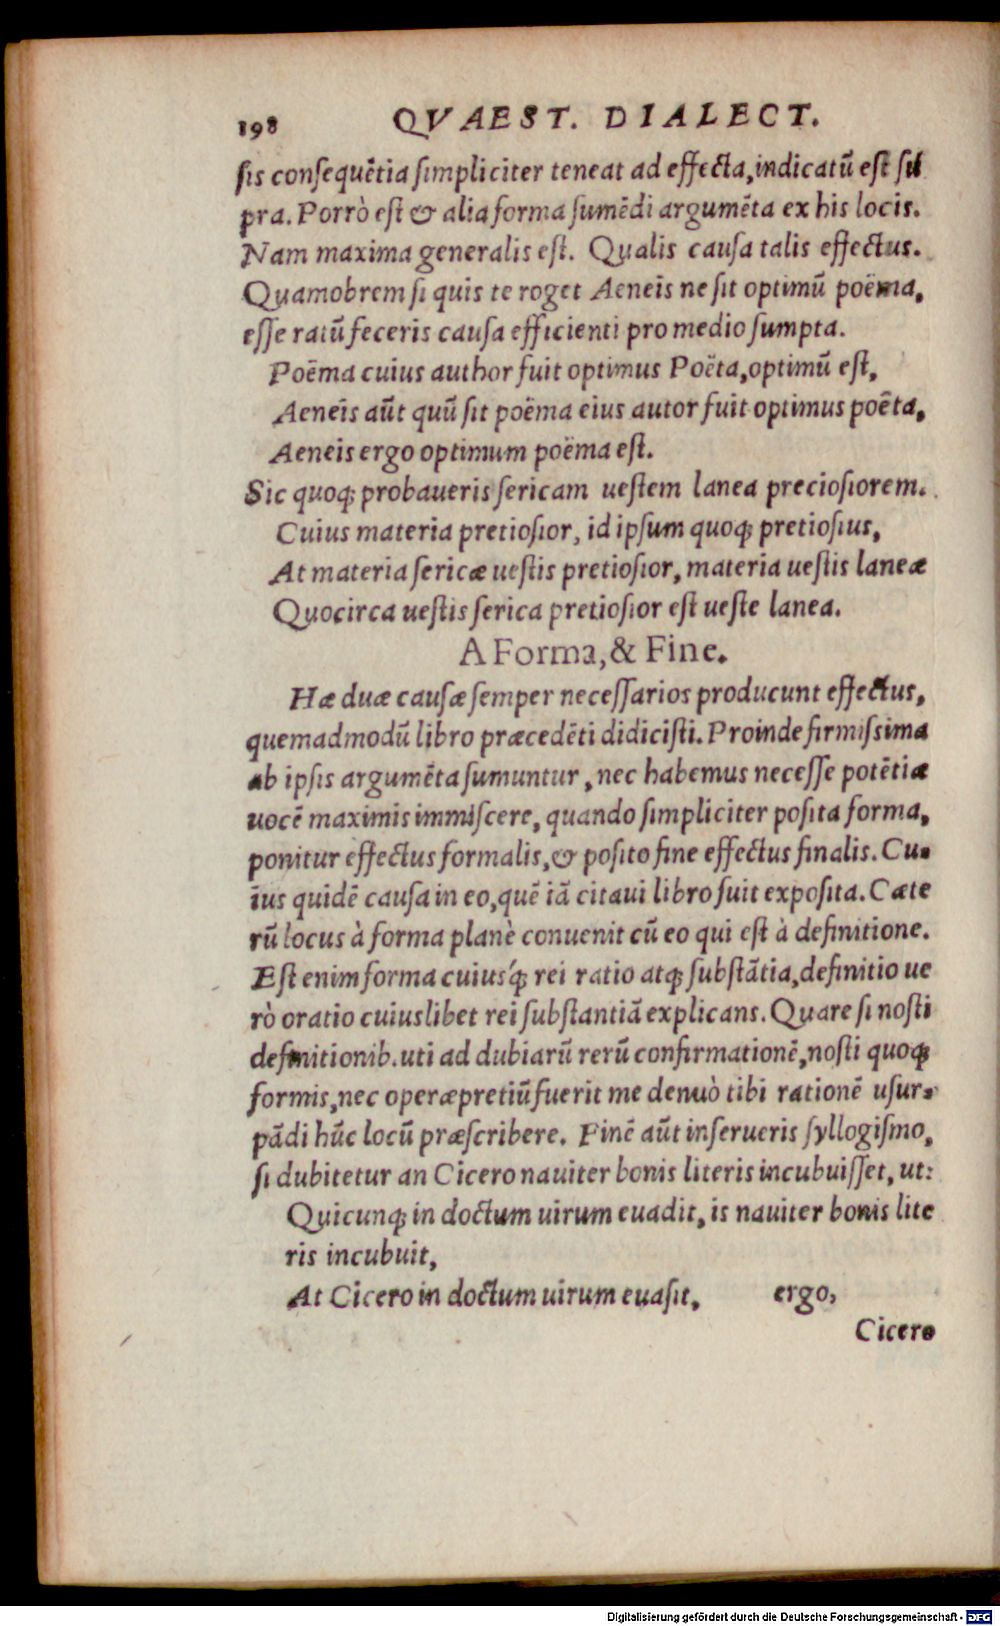 198 QVAEST. DIALECT.
sis consequẽtia simpliciter teneat ad effecta, indicatũ est su
pra. Porrò est & alia forma sumẽdi argumẽta ex his locis.
Nam maxima generalis est. Qualis causa talis effectus.
Quamobrem si quis te roget Aeneis ne sit optimũ poëma,
esse ratũ feceris causa efficienti pro medio sumpta.
Poëma cuius author fuit optimus Poëta, optimũ est,
Aeneis aũt quũ sit poëma eius autor fuit optimus poëta,
Aeneis ergo optimum poëma est.
Sic quoq; probaueris sericam uestem lanea preciosiorem.
Cuius materia pretiosior, id ipsum quoq; pretiosius,
At materia sericæ uestis pretiosior, materia uestis laneæ
Quocirca uestis serica pretiosior est ueste lanea.
A Forma, & Fine.
Hæ duæ causæ semper necessarios producunt effectus,
quemadmodũ libro præcedẽti didicisti. Proinde firmissima
ab ipsis argumẽta sumuntur, nec habemus necesse potẽtiæ
uocẽ maximis immiscere, quando simpliciter posita forma,
ponitur effectus formalis, & posito fine effectus finalis. Cu-
ius quidẽ causa in eo, quẽ iã citaui libro fuit exposita. Cæte
rũ locus à forma planè conuenit cũ eo qui est à definitione.
Est enim forma cuiusq́; rei ratio atq; substãtia, definitio ue
rò oratio cuiuslibet rei substantiã explicans. Quare si nosti
definitionib. uti ad dubiarũ rerũ confirmationẽ, nosti quoq;
formis, nec operæpretiũ fuerit me denuò tibi rationẽ usur-
pãdi hũc locũ præscribere. Finẽ aũt inserueris syllogismo,
si dubitetur an Cicero nauiter bonis literis incubuisset, ut:
Quicunq; in doctum uirum euadit, is nauiter bonis lite
ris incubuit,
At Cicero in doctum uirum euasit, ergo,
Cicero
Digitalisierung gefördert durch die Deutsche Forschungsgemeinschaft - DFG